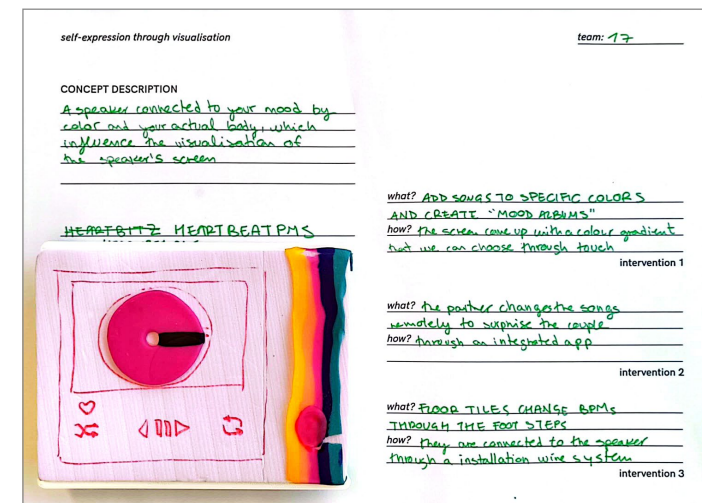 self-expression through visualisation
team: 17
CONCEPT DESCRIPTION
A speaker connected to your mood by
color and your actual body, which
influence the visualisation of
the speaker's screen
HEARTBITZ HEARTBEATPMS
what? ADD SONGS TO SPECIFIC COLORS
AND CREATE "MOOD ALBUMS"
how? the screen come up with a colour gradient
that we can choose through touch
intervention 1
what? the partner changes the songs
remotely to surprise the couple
how? through an integrated app
intervention 2
what? FLOOR TILES CHANGE BPMs
THROUGH THE FOOT STEPS
how? they are connected to the speaker
through a installation wire system
intervention 3